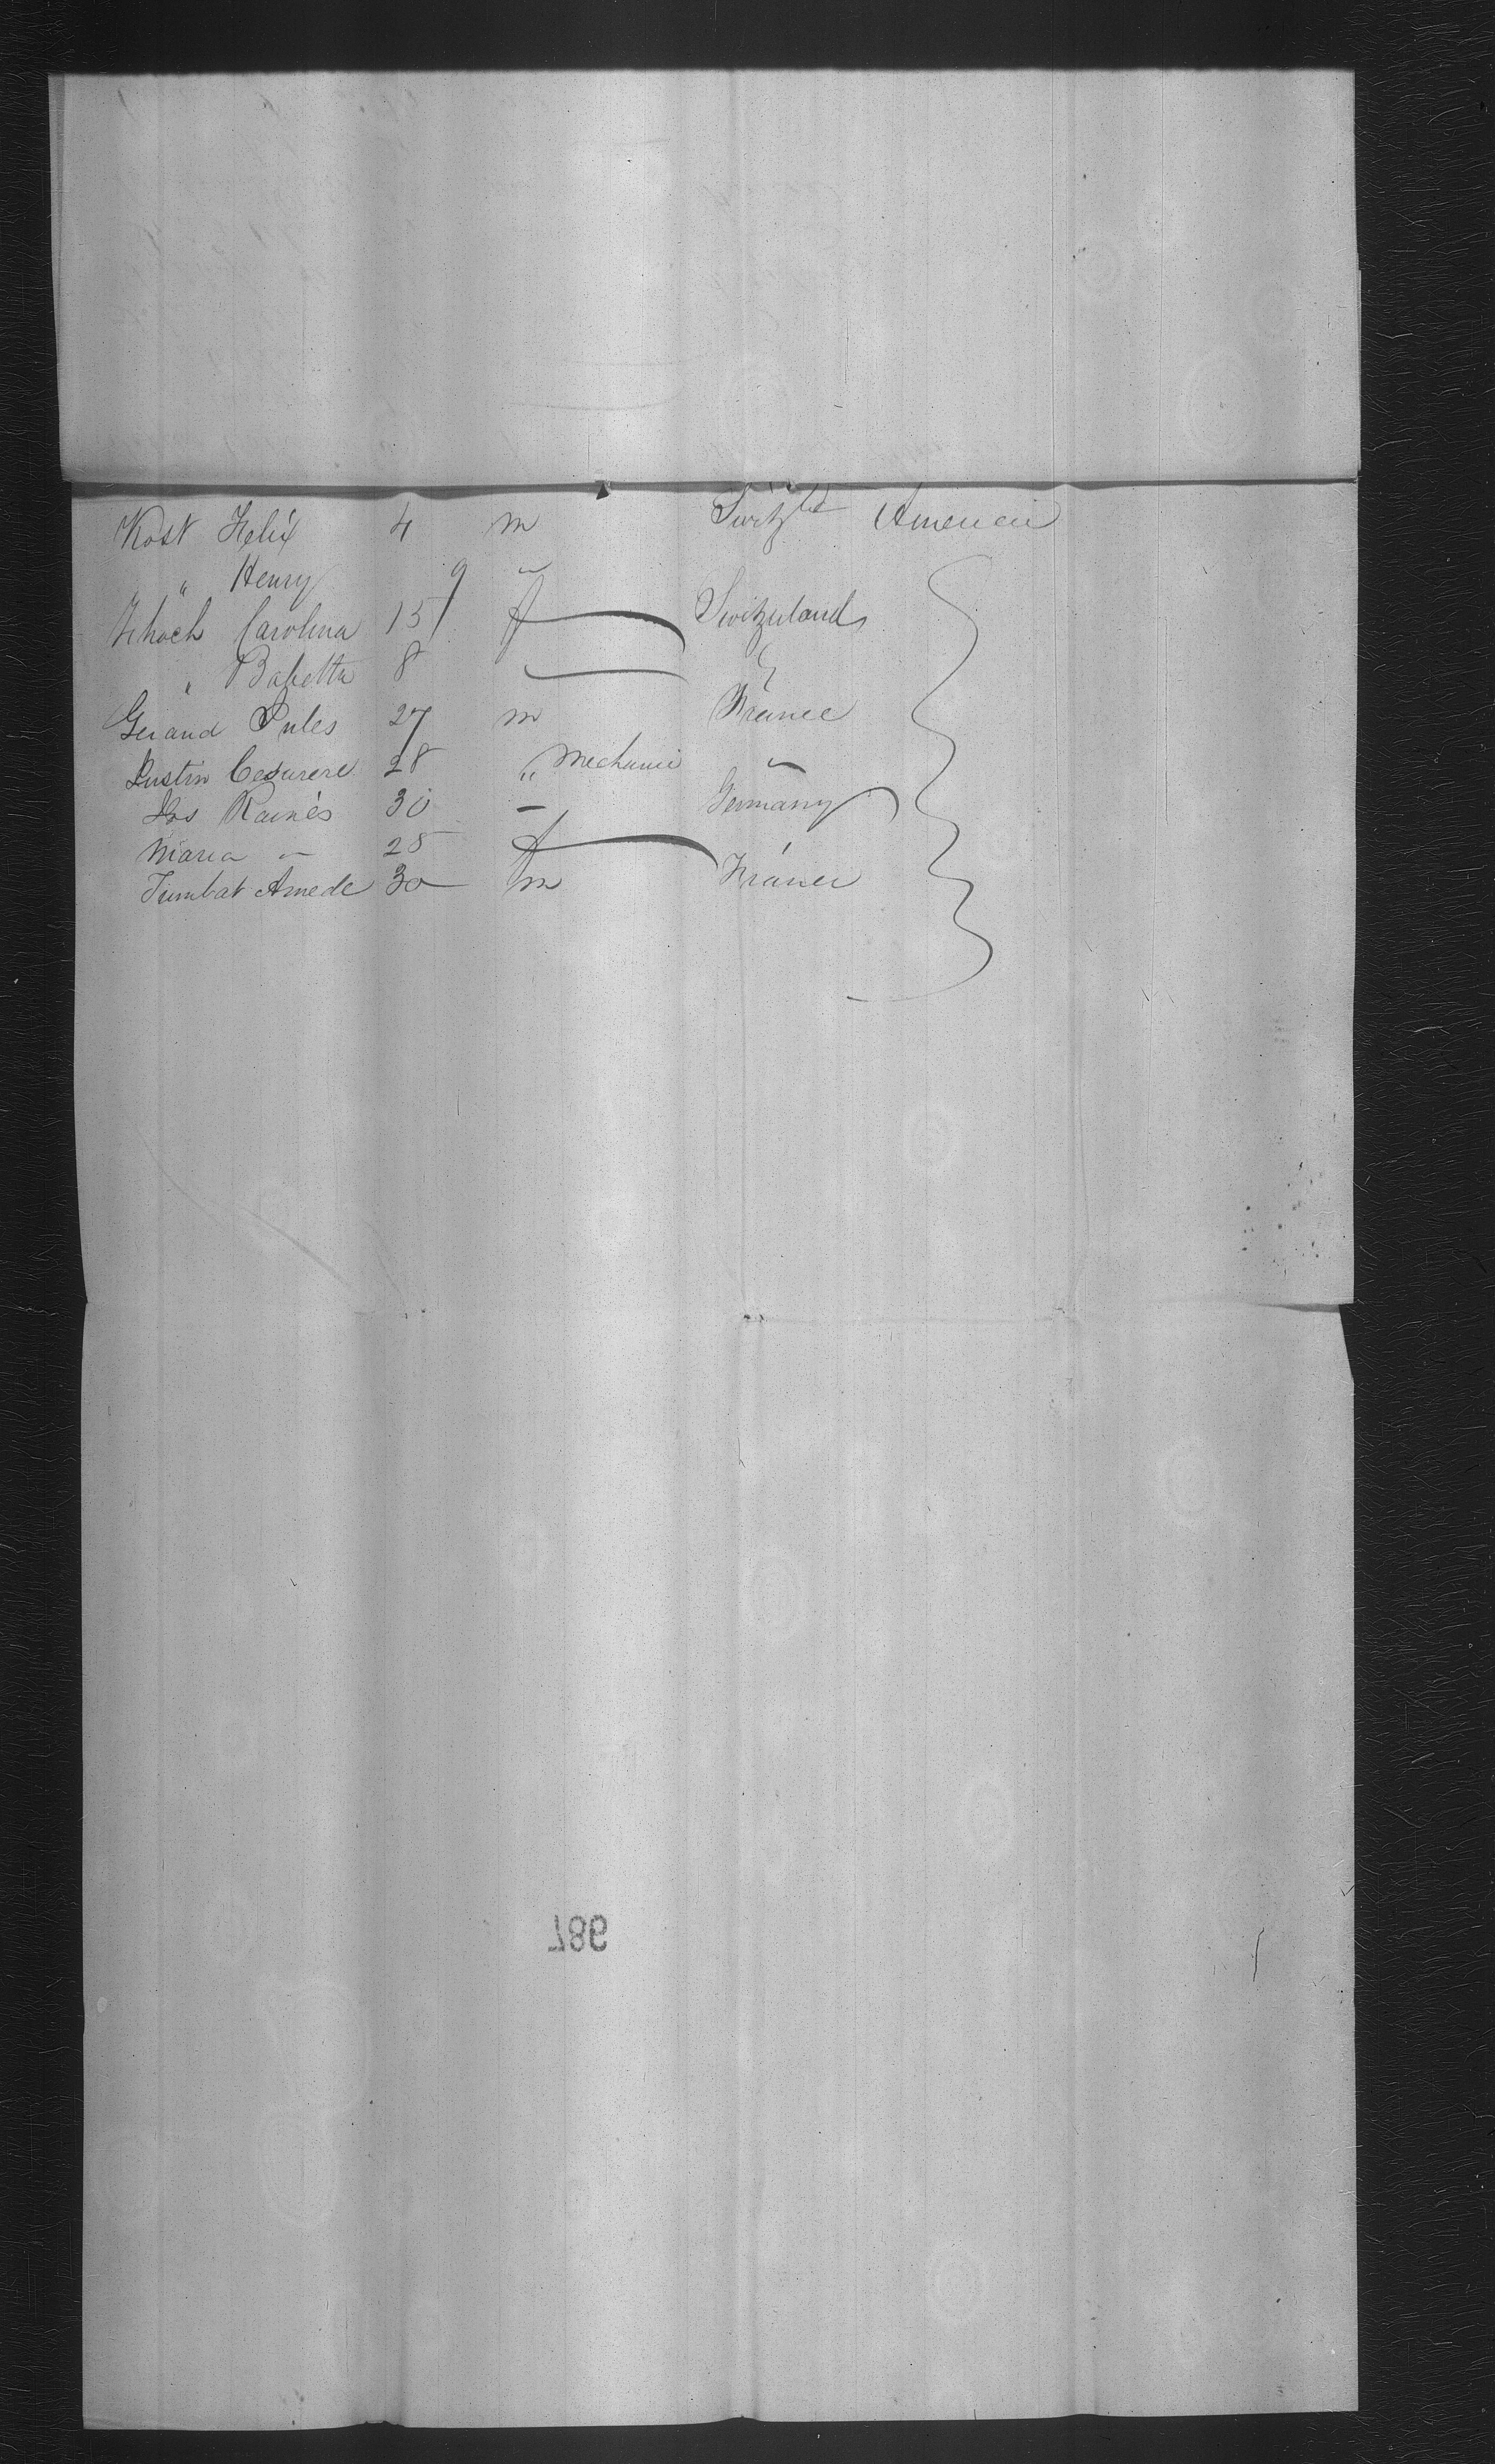 Kost Felix 4 m Switzld America
" Henry 9 "
Schoch Carolina 15 f Switzerland
" Babetta 8
Gerand Jules 27 m France
Justin 28 " Mechanic "
Jos Rainès 30 – Germany
Maria " 25 f
Tumbat Amede 30 m France
987